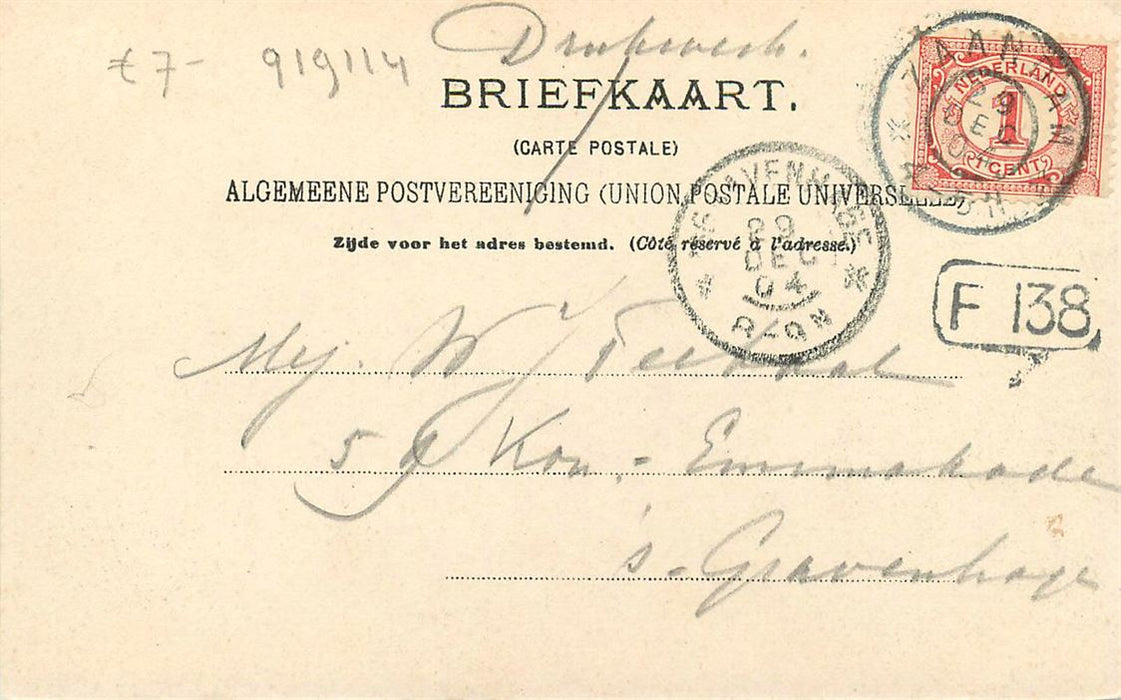 €7- 919114
Drukwerk.
BRIEFKAART.
(CARTE POSTALE)
ALGEMEENE POSTVEREENIGING (UNION POSTALE UNIVERSELLE)
Zijde voor het adres bestemd. (Côté réservé à l'adresse.)
ZAANDAM
29 DEC 04
NEDERLAND
1
CENT
'S GRAVENHAGE
29
DEC
04
8-9N
F 138
Mej. W
5 Kon. - Emmakade
's-Gravenhage